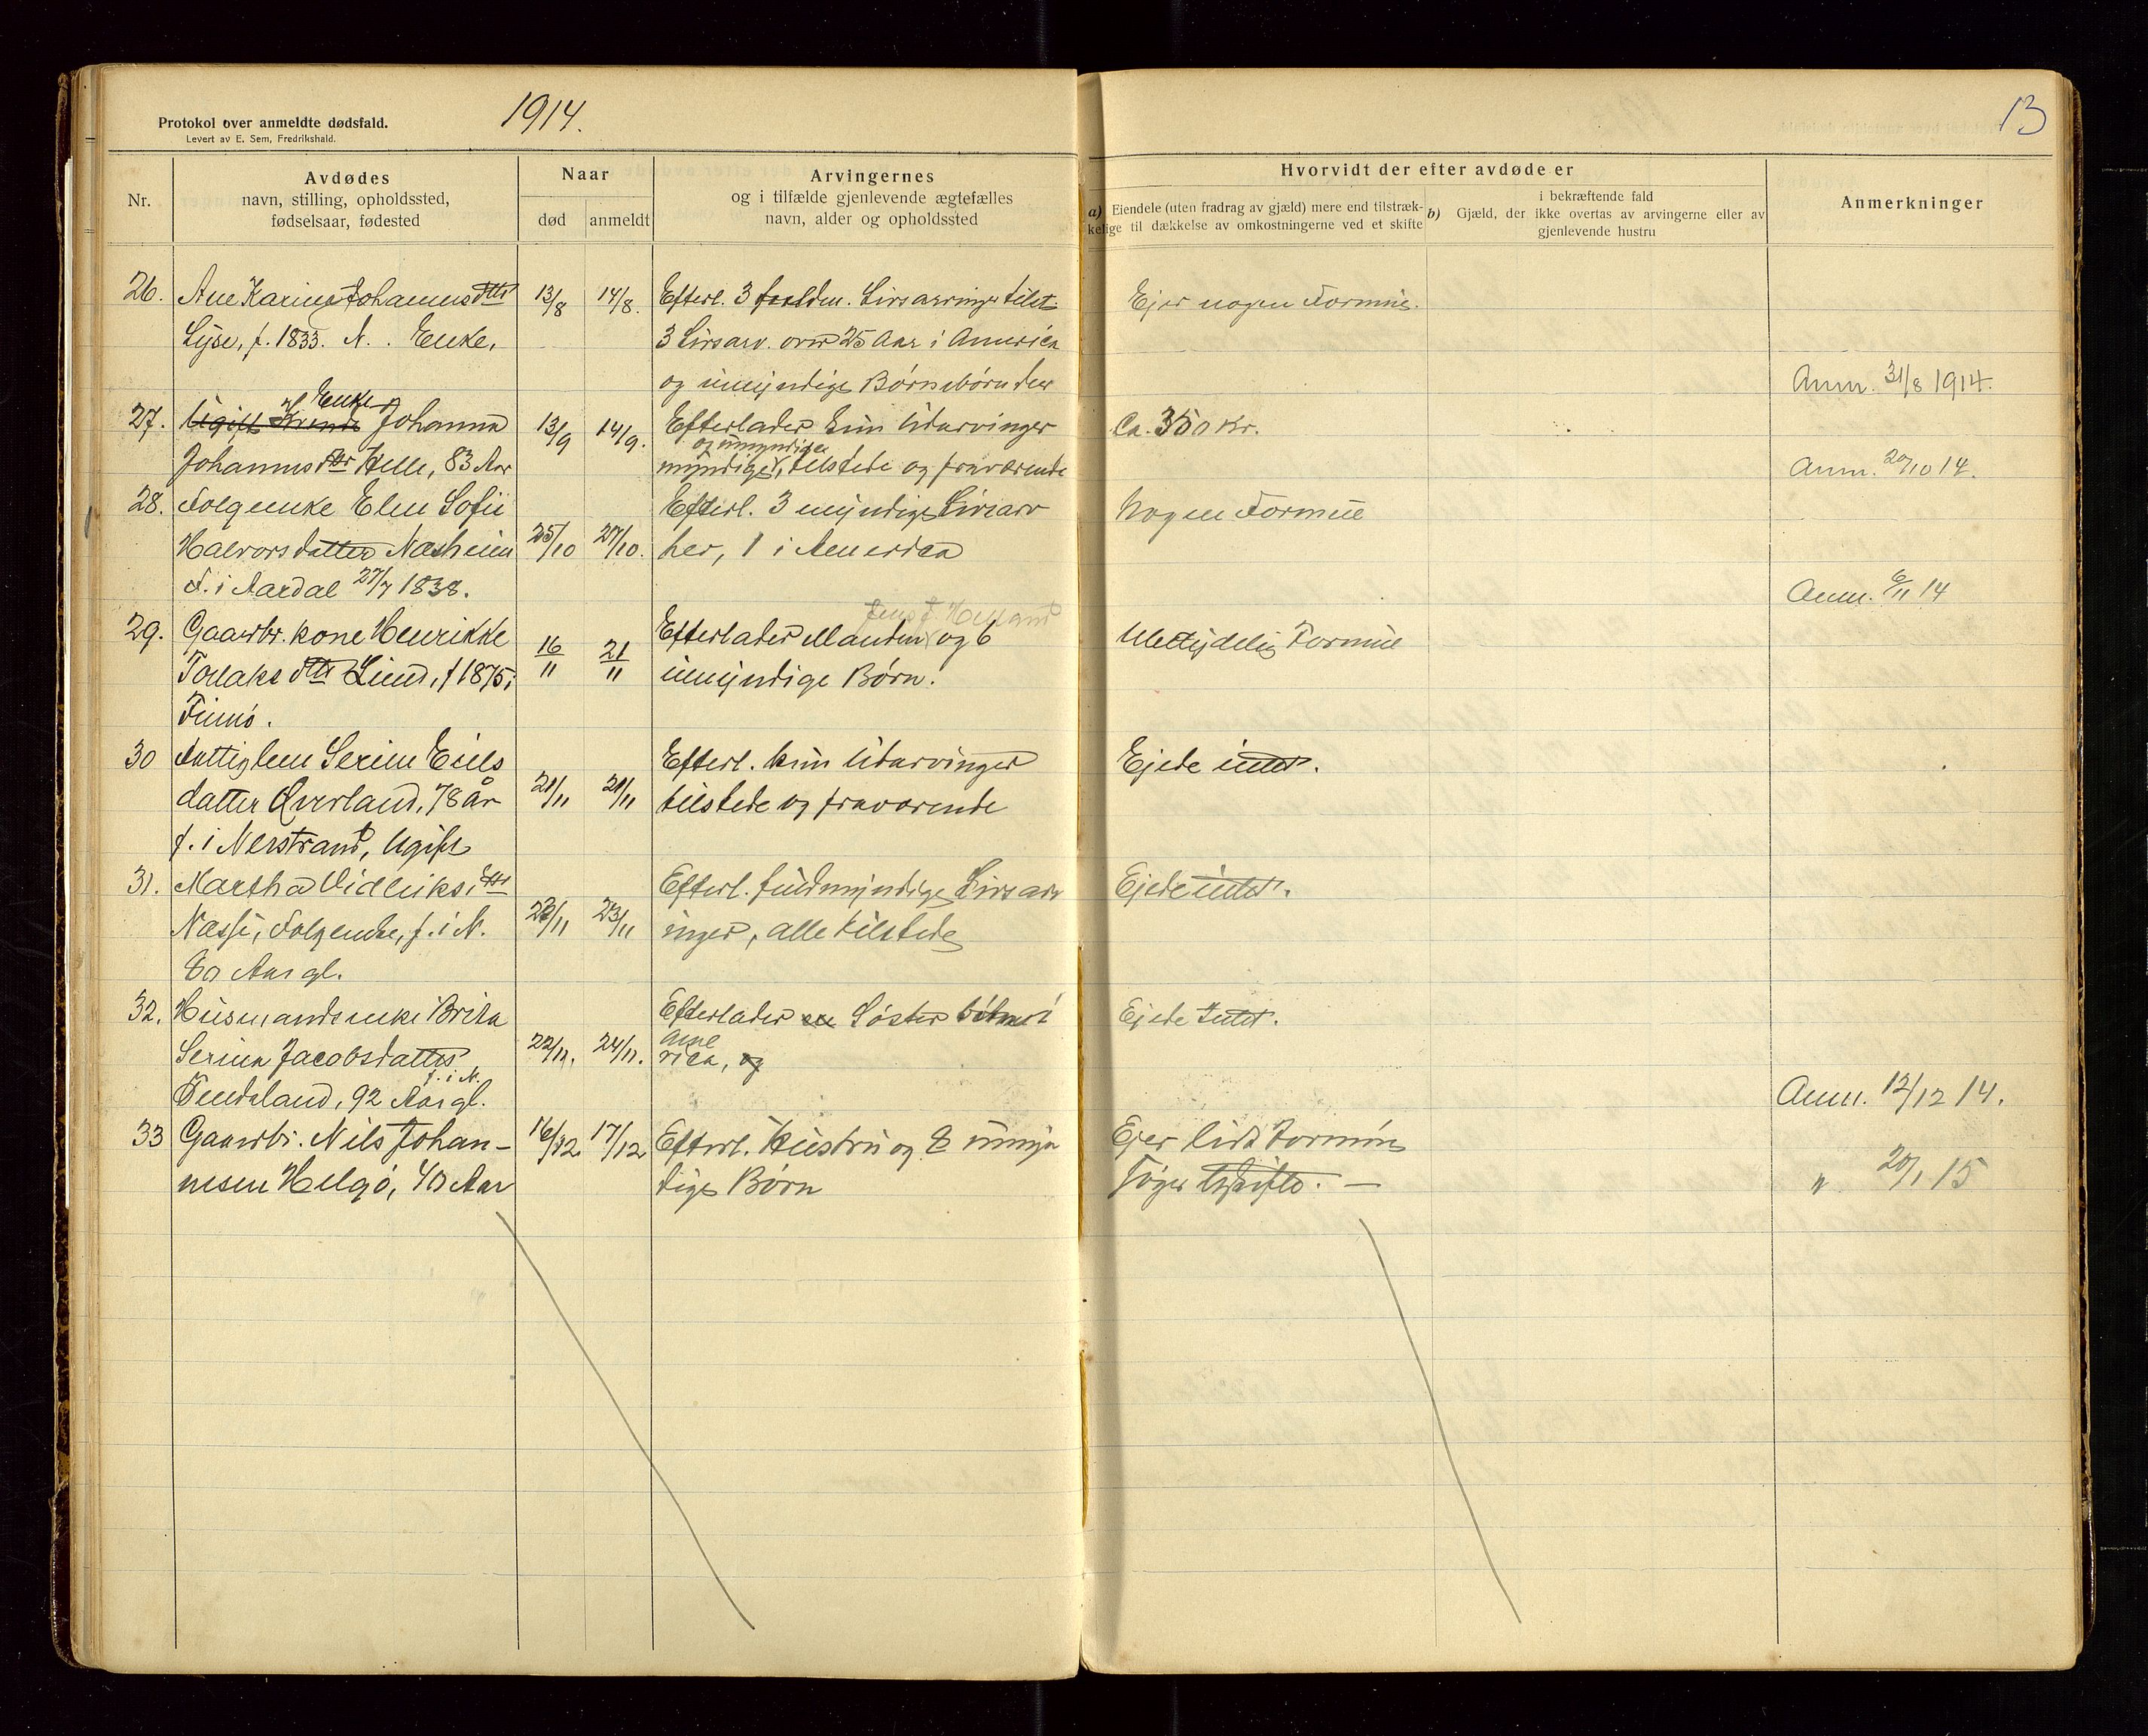 1914.
13
Protokol over anmeldte dødsfald.
Levert av E. Sem, Fredrikshald.
Nr.
Avdødes
navn, stilling, opholdssted,
fødselsaar, fødested
Naar
død
anmeldt
Arvingernes
og i tilfælde gjenlevende ægtefælles
navn, alder og opholdssted
Hvorvidt der efter avdøde er
a) Eiendele (uten fradrag av gjæld) mere end tilstræk-
kelige til dækkelse av omkostningerne ved et skifte
b) Gjæld, der
i bekræftende fald
ikke overtas av arvingerne eller av
gjenlevende hustru
Anmerkninger
26. Ane Karine Johannesdtr 13/8 14/8. Efterl. 3 Livsarvinger tilst. Ejer nogen Formue.
Lyse, f. 1833. N. Enke, 3 Livsarv. over 25 Aar i America
og umyndige Børnebørn der Anm. 31/8 1914.
Enke
27. Ugift Kvinde Johanna 13/9 14/9. Efterlader kun Udarvinger Ca. 350 Kr.
og umyndige
Johannesdtr Helle, 83 Aar myndige, tilstede og fraværende Anm. 20/10 14.
28. Folgeenke Elen Sofie Efterl. 3 myndige Livsarv Nogen Formue
Halvorsdatter Næsheim 25/10 27/10. her, 1 i America
F. i Aardal 27/7 1838. Anm. 6/11 14
Jens J. Helland
29. Gaardbr. kone Henrikke 16/11 21/11 Efterlader Manden og 6 Ubetydelig Formue
Tollaksdtr Lund, f 1875 i umyndige Børn.
Finnø.
30 Fattiglem Serine Eiels Efterl. kun Udarvinger Ejede intet.
datter Qverland, 78 år 21/11 21/11 tilstede og fraværende
f. i Nerstrand, Ugift
31. Martha Vidleiksdtr Efterl. fuldmyndige Livsarv Ejede intet.
Næssø, Folgeenke, f. i N. 22/11 23/11 inger, alle tilstede
80 Aar gl.
32. Husmandsenke Brita Efterlader en Søster i Ejede Intet.
Serina Jacobsdatter 22/11. 24/11. Ame
rica, og
f. i N.
Tendeland, 92 Aar gl. Anm. 12/12 14.
33 Gaardbr. Nils Johan- 16/12 17/12 Efterl. Hustru og 8 umyn Ejer lidt Formue
nesen Helgø, 40 Aar dige Børn " 20/1 15